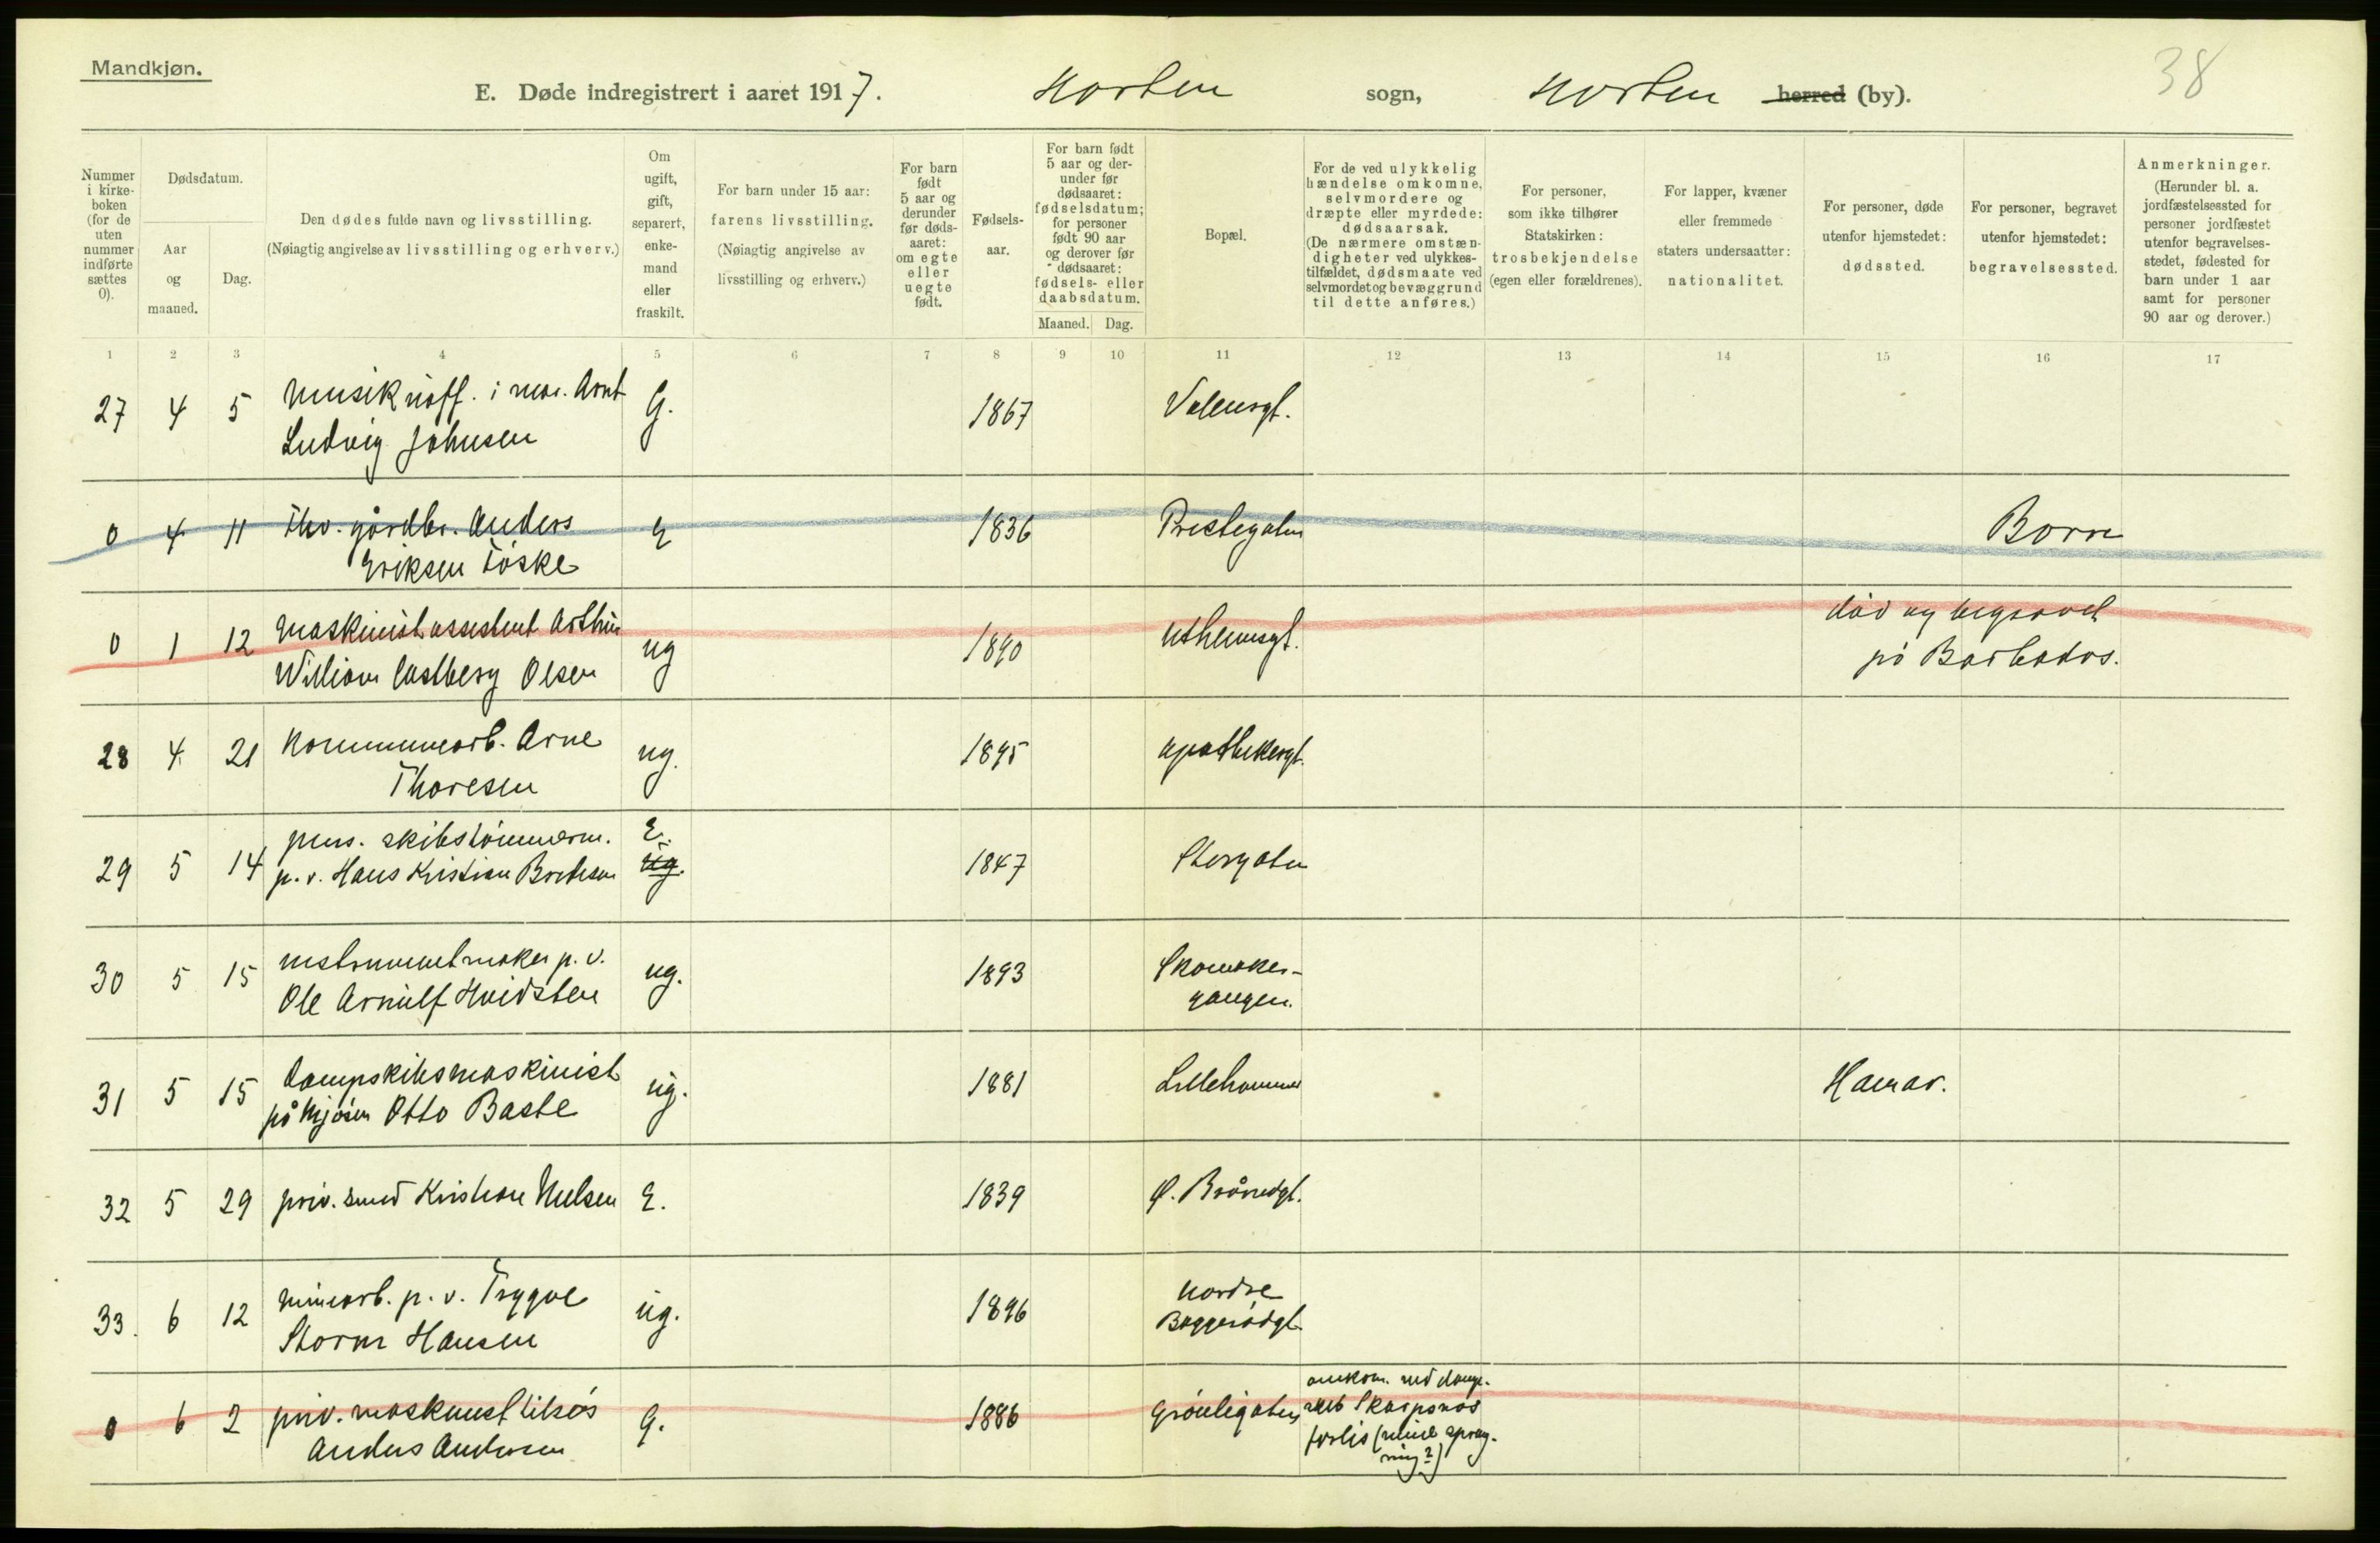 Mandkjøn.
E. Døde indregistrert i aaret 1917. Horten sogn, Horten herred (by). 38
Nummer i kirkeboken (for de uten nummer indførte sættes 0).
Dødsdatum.
Aar og maaned.
Dag.
Den dødes fulde navn og livsstilling.
(Nøiagtig angivelse av livsstilling og erhverv.)
Om ugift, gift, separert, enkemand eller fraskilt.
For barn under 15 aar:
farens livsstilling.
(Nøiagtig angivelse av livsstilling og erhverv.)
For barn født 5 aar og derunder før dødsaaret: om egte eller uegte født.
Fødselsaar.
For barn født 5 aar og derunder før dødsaaret: fødselsdatum; for personer født 90 aar og derover før dødsaaret: fødsels- eller daabsdatum.
Maaned. Dag.
Bopæl.
For de ved ulykkelig hændelse omkomne, selvmordere og dræpte eller myrdede: dødsaarsak.
(De nærmere omstændigheter ved ulykkestilfældet, dødsmaate ved selvmordet og bevæggrund til dette anføres.)
For personer, som ikke tilhører Statskirken: trosbekjendelse (egen eller forældrenes).
For lapper, kvæner eller fremmede staters undersaatter: nationalitet.
For personer, døde utenfor hjemstedet: dødssted.
For personer, begravet utenfor hjemstedet: begravelsessted.
Anmerkninger.
(Herunder bl. a. jordfæstelsessted for personer jordfæstet utenfor begravelsesstedet, fødested for barn under 1 aar samt for personer 90 aar og derover.)
1 2 3 4 5 6 7 8 9 10 11 12 13 14 15 16 17
27 4 5 Musikuoff. i mar. Arnt G. 1867 Valensgt.
Ludvig Johnsen
0 4 11 Fhv. gårdbr. Anders E 1836 Prestegaten Borre
Eriksen Föske
0 1 12 Maskinistassistent Arthur ug 1890 død og begravet
William Castberg Olsen på Barbados.
28 4 21 Kommunearb. Arne ug. 1895 Apothekergt.
Thoresen
29 5 14 pens. skibstömmerm. E. 1847 Storgaten
p. v. Hans Kristian Bredesen ug.
30 5 15 instrumentmaker p. v. ug. 1893 Skomaker-
Ole Arnulf Hvidsten gangen.
31 5 15 Dampskibsmaskinist ug. 1881 Lillehammer Hamar.
på Mjösen Otto Baste
32 5 29 priv. smed Kristian Nielsen E. 1839 Ø. Brårudgt.
33. 6 12 minearb. p. v. Trygve ug. 1896 Nordre
Storm Hansen Baggerödgt.
0 6 2 priv. maskinist tilsös G. 1886 Grönligaten omkom. ved damp-
Anders Andersen skib Skarpsnos
forlis (mine spræng-
ning?)